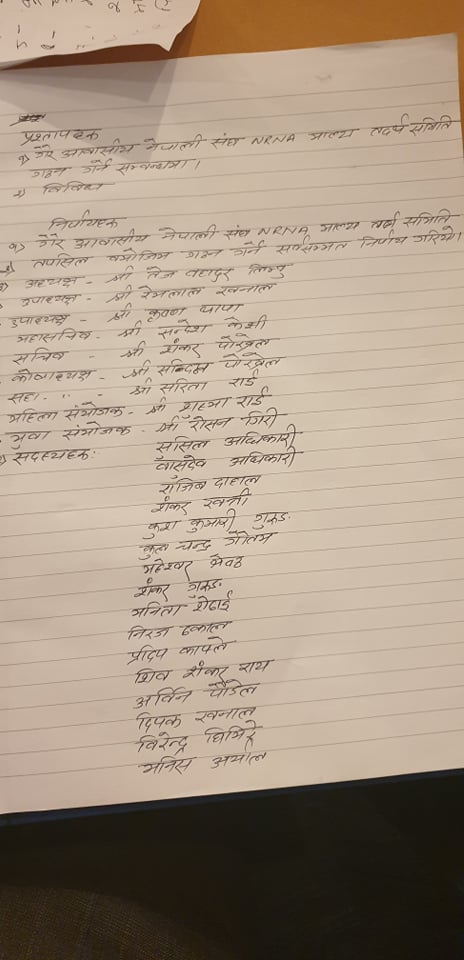 प्रस्तावहरू
१) गैर आवासीय नेपाली संघ NRNA माल्टा तदर्थ समिति
गठन गर्ने सम्बन्धमा।
२) विविध
निर्णयहरू
१) गैर आवासीय नेपाली संघ NRNA माल्टा तदर्थ समिति
तपसिल बमोजिम गठन गर्ने सर्वसम्मत निर्णय गरियो।
अध्यक्ष - श्री तेज बहादुर लिम्बु
उपाध्यक्ष - श्री प्रेमलाल खनाल
उपाध्यक्ष - श्री कृष्ण थापा
महासचिव - श्री सन्देश केसी
सचिव - श्री शंकर पोखरेल
कोषाध्यक्ष - श्री सन्दिप पोखरेल
सहा. " - श्री सरिता राई
महिला संयोजक - श्री राई
युवा संयोजक - श्री रोसन गिरी
सदस्यहरू:
सुसिल अधिकारी
वासुदेव अधिकारी
राजिब दाहाल
शंकर खत्री
कुश कुमारी गुरुङ
चन्द्र गौतम
महेश्वर
शंकर गुरुङ
मनिता
निरज ढकाल
प्रदिप काफ्ले
शिव शंकर राय
अर्विन पौडेल
दिपक खनाल
विरेन्द्र घिमिरे
मनिस अर्याल